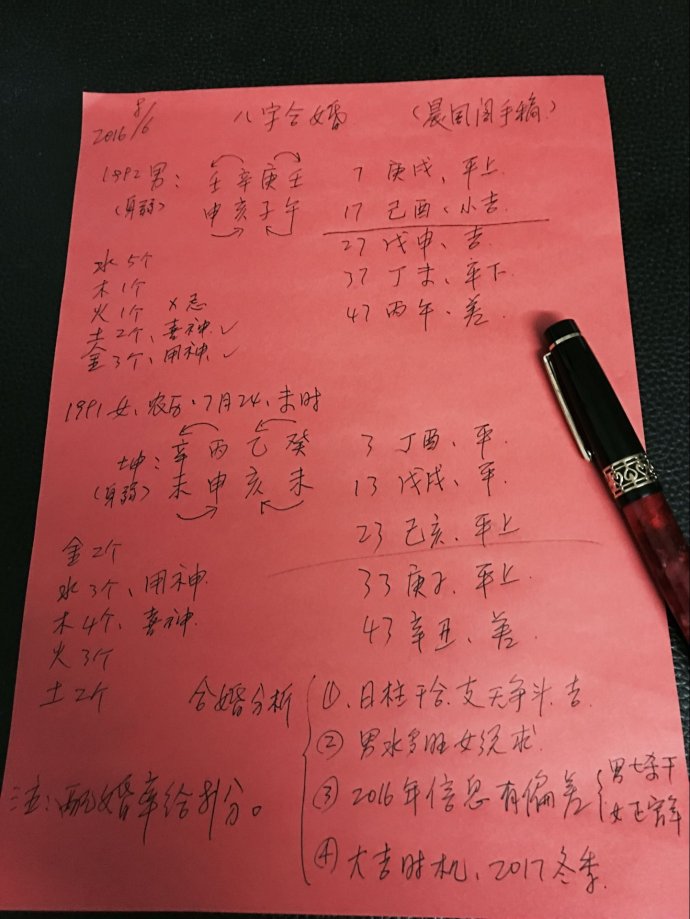 2016 8/6 八字合婚 (晨闻阁手稿)
1992男: 壬辛庚壬
(身弱) 申亥子午
7 庚戌、平上
17 己酉、小吉
27 戊申、吉
37 丁未、平下
47 丙午、差
水5个
木1个
火1个 ×忌
土2个、喜神✓
金3个、用神✓
1991女、农历、7月24、未时
坤: 辛丙乙癸
(身弱) 未申亥未
3 丁酉、平.
13 戊戌、平.
23 己亥、平上
33 庚子、平上
43 辛丑、差
金2个
水3个、用神
木4个、喜神
火3个
土2个
合婚分析
①、日柱干合,支无争斗.吉
② 男水多旺女
③ 2016年信息有偏差
男七杀干
女正官年
④ 大吉时机、2017冬季.
注:配婚率给